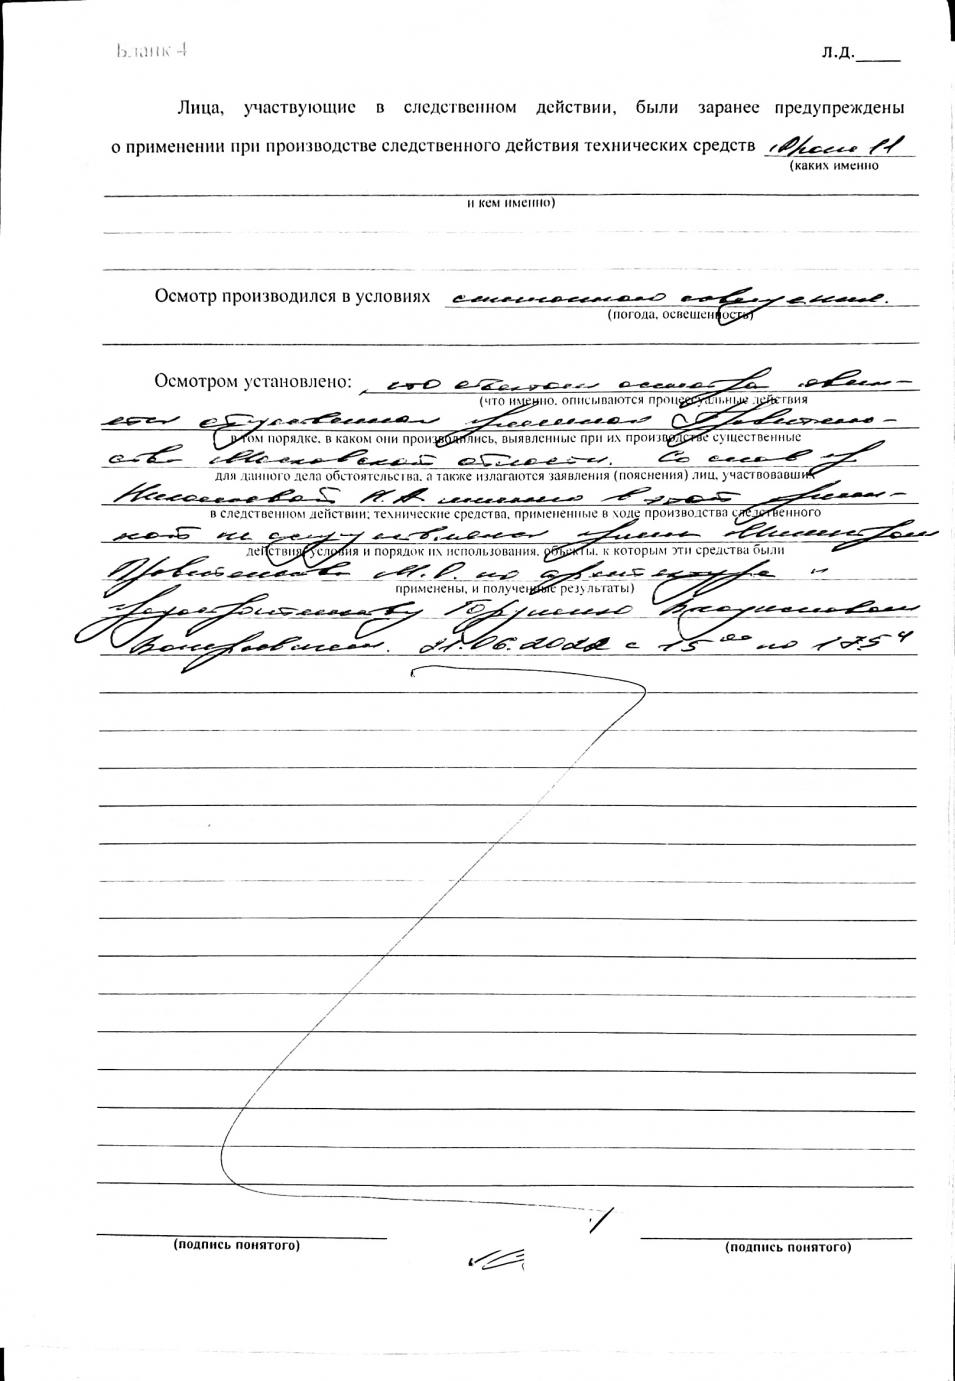 Бланк 4
Л.Д.
Лица, участвующие в следственном действии, были заранее предупреждены
о применении при производстве следственного действия технических средств iPhone 11
(каких именно
и кем именно)
Осмотр производился в условиях освещения.
(погода, освещенность)
Осмотром установлено: что объектом осмотра являю-
(что именно, описываются процессуальные действия
приемная Правительс-
в том порядке, в каком они производились, выявленные при их производстве существенные
ства Московской области. Со слов
для данного дела обстоятельства, а также излагаются заявления (пояснения) лиц, участвовавших
Н.А. именно в этой прием-
в следственном действии; технические средства, примененные в ходе производства следственного
ной осуществлялся прием Министром
действия, условия и порядок их использования, объекты, к которым эти средства были
Правительства М.О. по архитектуре и
применены, и полученные результаты)
градостроительству Владиславом
Валерьевичем. 21.06.2022 с 15 00 по 17 54
(подпись понятого)
(подпись понятого)